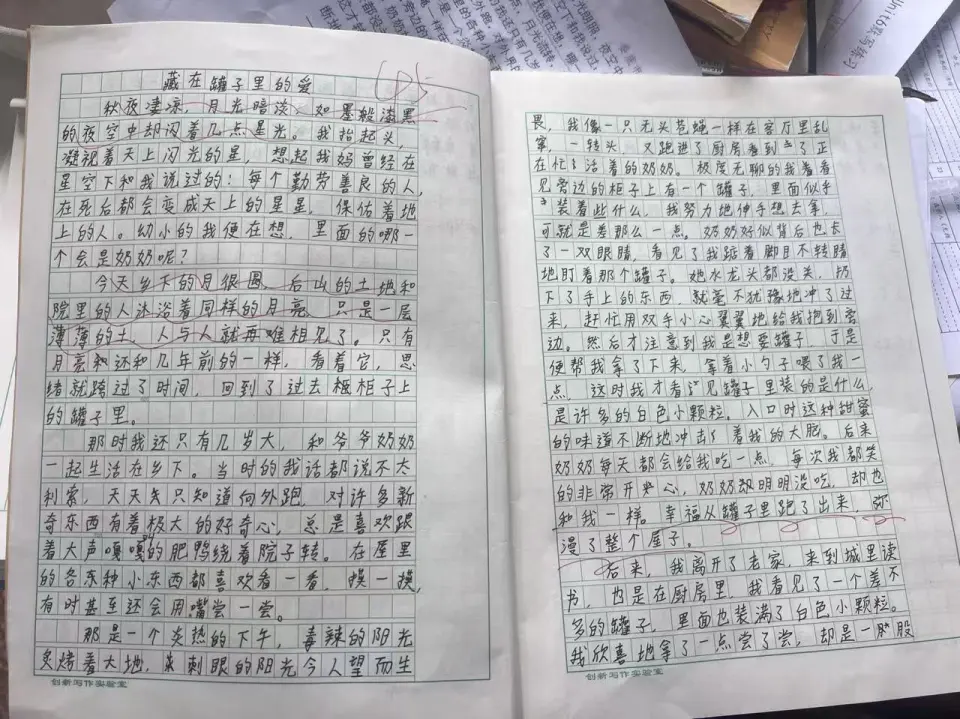 藏在罐子里的爱
秋夜凄凉，月光暗淡，如墨般漆黑
的夜空中却闪着几点星光。我抬起头，
凝视着天上闪光的星，想起我妈曾经在
星空下和我说过的：每个勤劳善良的人，
在死后都会变成天上的星星，保佑着地
上的人。幼小的我便在想，里面的哪一
个会是奶奶呢？
今天乡下的月很圆，后山的土地和
院里的人沐浴着同样的月亮，只是一层
薄薄的土，人与人就再难相见了。只有
月亮还和几年前的一样，看着它，思
绪就跨过了时间，回到了过去柜子上
的罐子里。
那时我还只有几岁大，和爷爷奶奶
一起生活在乡下。当时的我话都说不大
利索，天天只知道向外跑，对许多新
奇东西有着极大的好奇心，总是喜欢跟
着大声嘎嘎的肥鸭绕着院子转。在屋里
的各种小东西都喜欢看一看，摸一摸，
有时甚至还会用嘴尝一尝。
那是一个炎热的下午，毒辣的阳光
炙烤着大地，刺眼的阳光令人望而生
创新写作实验室
畏，我像一只无头苍蝇一样在客厅里乱
窜，一转头，又跑进了厨房看到了正
在忙活着的奶奶。极度无聊的我看着看
见旁边的柜子上有一个罐子，里面似乎
装着些什么，我努力地伸手想去拿，
可就是差那么一点。奶奶好似背后也长
了一双眼睛，看见了我踮着脚目不转睛
地盯着那个罐子。她水龙头都没关，扔
下了手上的东西，就毫不犹豫地冲了过
来，赶忙用双手小心翼翼地给我抱到旁
边。然后才注意到我是想要罐子，于是
便帮我拿了下来，拿着小勺子喂了我一
点，这时我才看见罐子里装的是什么，
是许多的白色小颗粒。入口时这种甜蜜
的味道不断地冲击着我的大脑。后来
奶奶每天都会给我吃一点，每次我都笑
的非常开心，奶奶明明没吃，却也
和我一样。幸福从罐子里跑了出来，弥
漫了整个屋子。
后来，我离开了老家，来到城里读
书，也是在厨房里，我看见了一个差不
多的罐子，里面也装满了白色小颗粒。
我欣喜地拿了一点尝了尝，却是一股
创新写作实验室